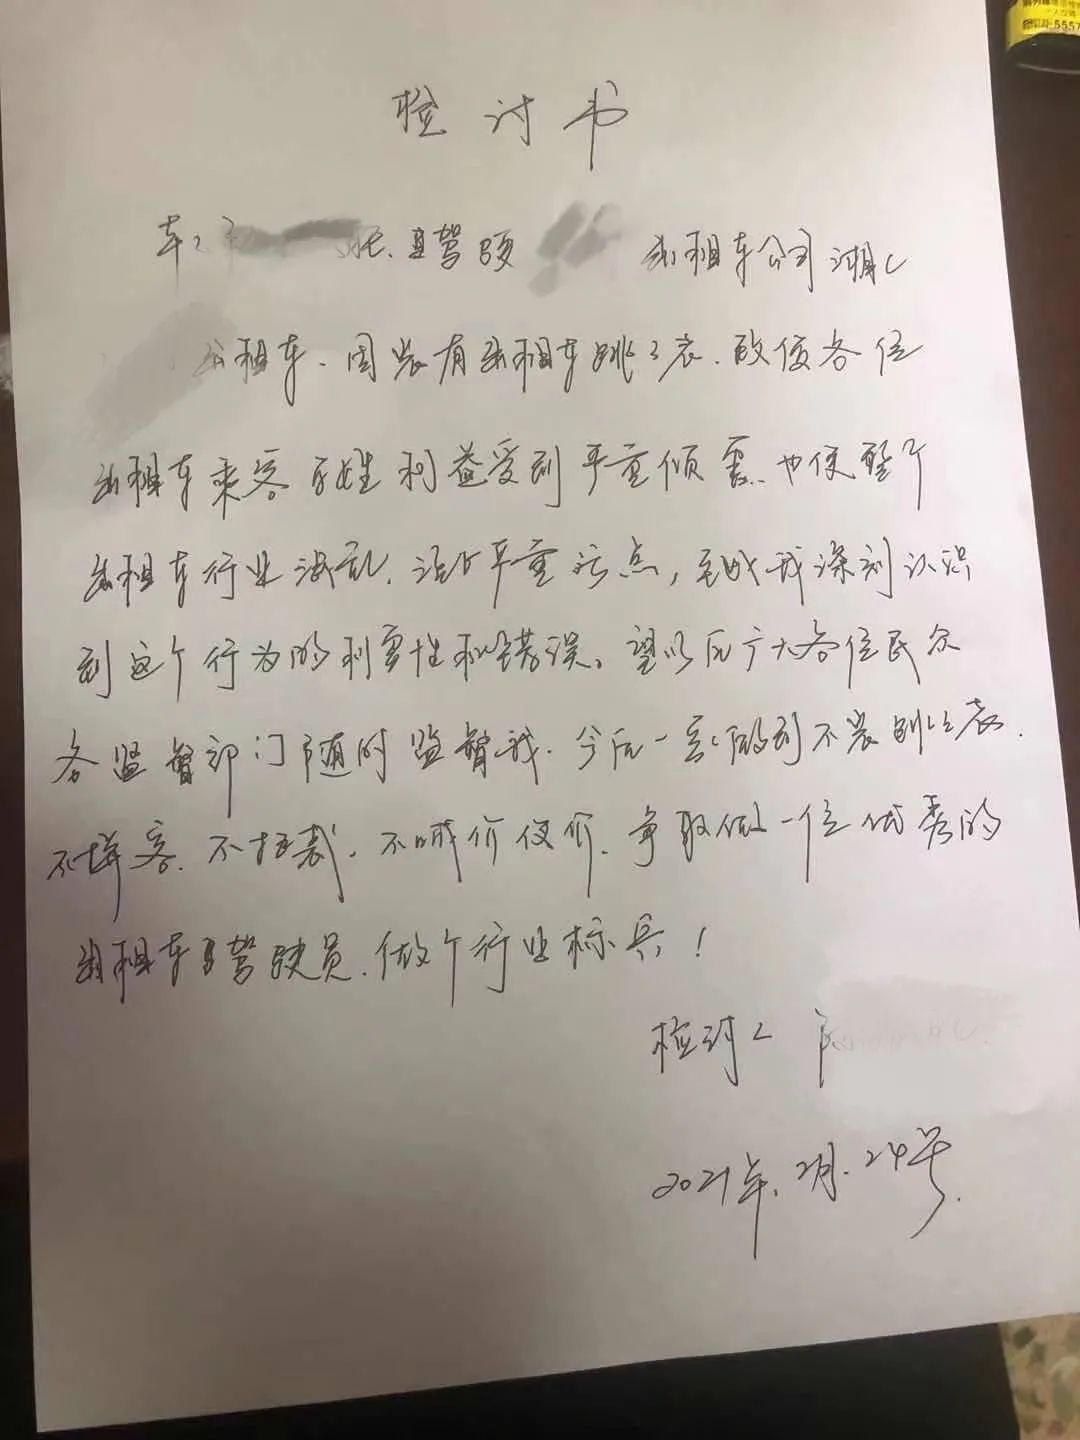 检讨书
驾驶 出租车公司湘C
出租车.因装有出租车跳跳表.致使各位
出租车乘客 利益受到严重倾害.也使整个
出租车行业混乱. 严重污点,至此我深刻认识
到这个行为的利害性和错误。望以后广大各位民众
各监督部门随时监督我.今后一定做到不装跳跳表.
不择客.不拒载.不喊价议价.争取做一位优秀的
出租车驾驶员.做个行业标兵!
检讨人
2021年.2月.24号.
5557